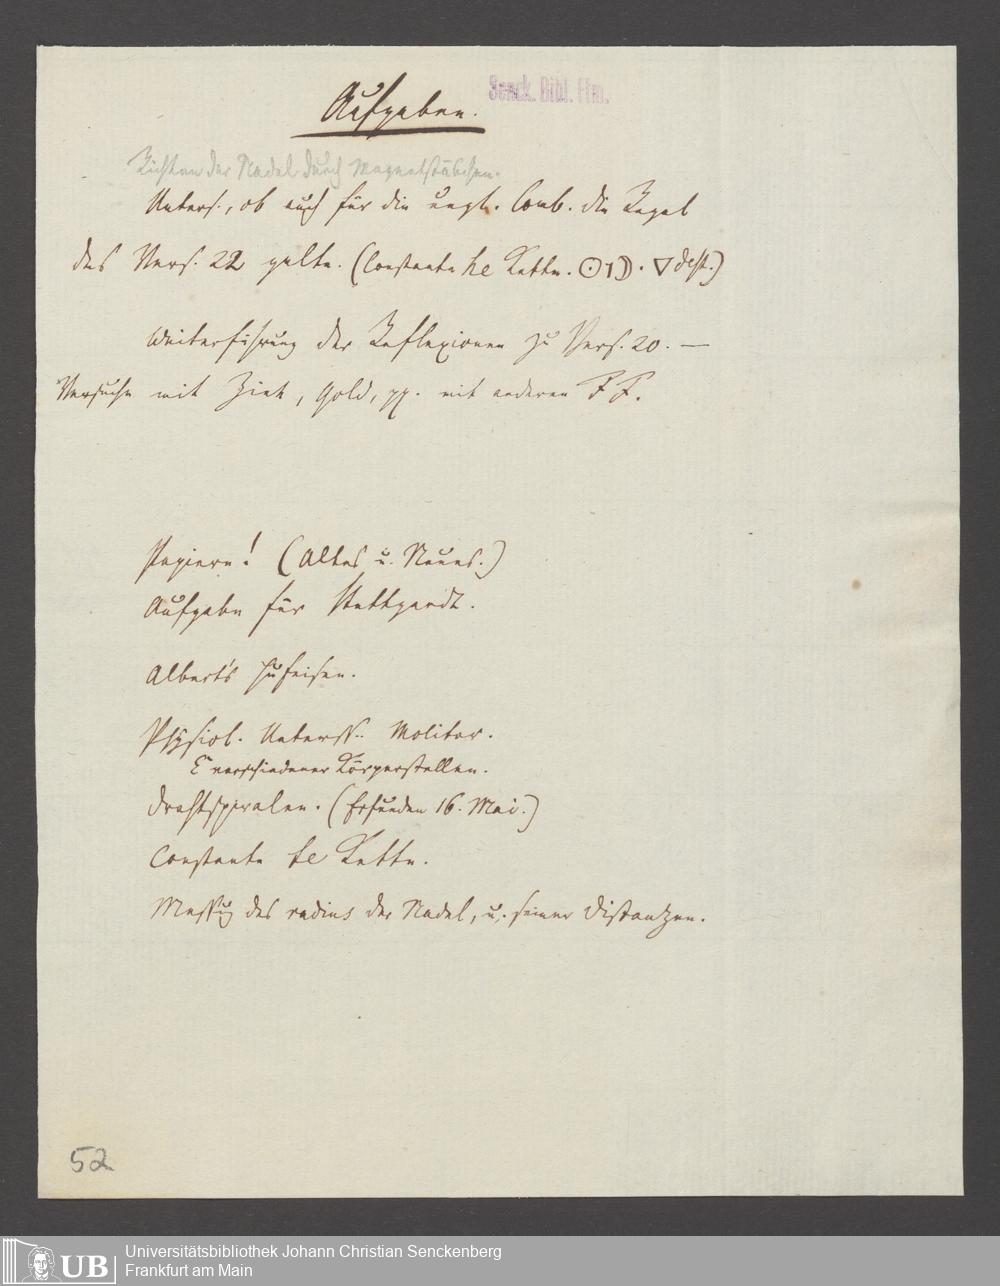 Aufgaben.
Senck. Bibl. Ffm.
Richten der Nadel durch Magnetstäbchen.
Unters., ob auch für die ungl. Comb. die Regel
des Vers. 22 gelte. (Constante Kette. ☉1☽. ▽ dest.)
Weiterführung der Reflexionen zu Vers. 20. —
Versuche mit Zink, Gold, pp. mit anderen FF.
Papiere! (Altes u. Neues.)
Aufgabe für Stuttgardt.
Albert's Hufeisen.
Physiol. Unterss. Molitor.
E verschiedener Körperstellen.
Drahtspiralen. (Erfunden 16. Mai.)
Constante Kette.
Messung des radius der Nadel, u. seiner Distanzen.
52
UB
Universitätsbibliothek Johann Christian Senckenberg
Frankfurt am Main